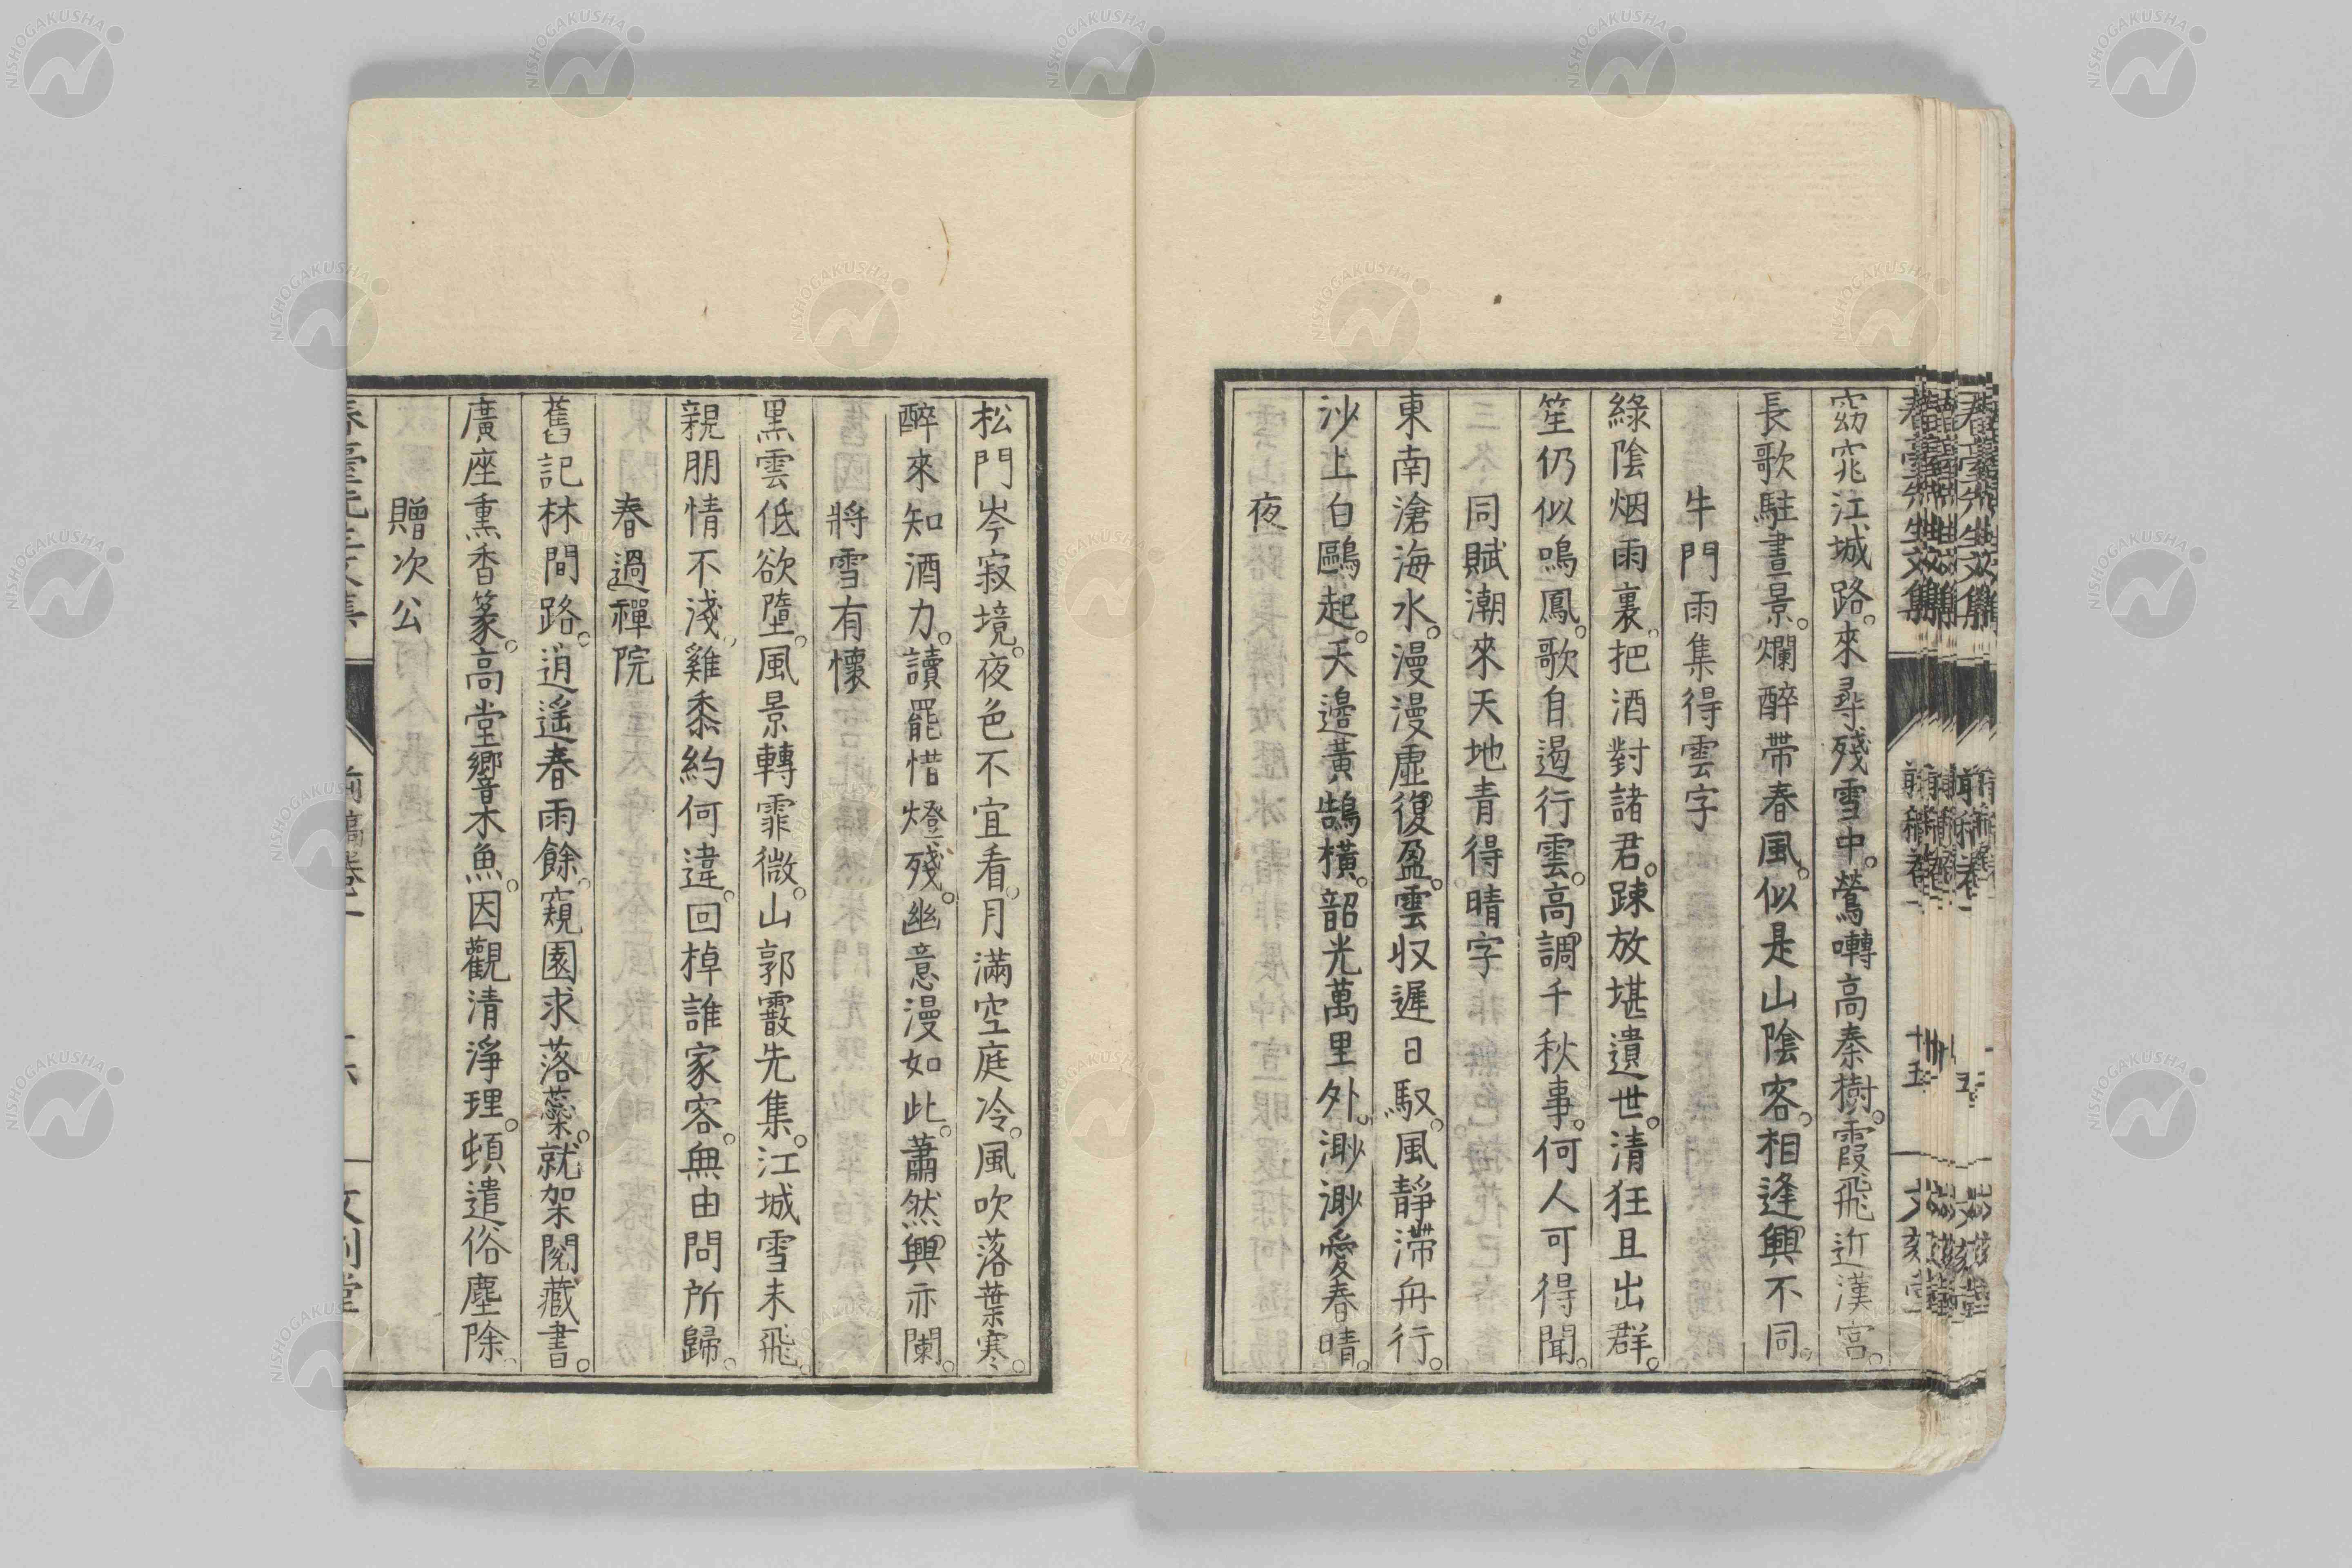 窈窕江城路。來尋殘雪中。鶯囀高秦樹。霞飛近漢宮。
長歌駐晝景。爛醉帶春風。似是山陰客。相逢興不同。
牛門雨集得雲字
綠陰烟雨裏。把酒對諸君。踈放堪遺世。清狂且出群。
笙仍似鳴鳳。歌自遏行雲。高調千秋事。何人可得聞。
同賦潮來天地青得晴字
東南滄海水。漫漫虛復盈。雲収遲日馭。風靜滯舟行。
沙上白鷗起。天邊黃鵠橫。韶光萬里外。渺渺愛春晴。
夜
松門岑寂境。夜色不宜看。月滿空庭冷。風吹落葉寒。
醉來知酒力。讀罷惜燈殘。幽意漫如此。蕭然興亦闌。
將雪有懷
黑雲低欲墮。風景轉霏微。山郭霰先集。江城雪未飛。
親朋情不淺。雞黍約何違。回棹誰家客。無由問所歸。
春過禪院
舊記林間路。逍遙春雨餘。窺園求落蘂。就架閱藏書。
廣座熏香篆。高堂響木魚。因觀清淨理。頓遣俗塵除。
贈次公
春臺先生文集
前稿卷二
十六
文刻堂
NISHOGAKUSHA